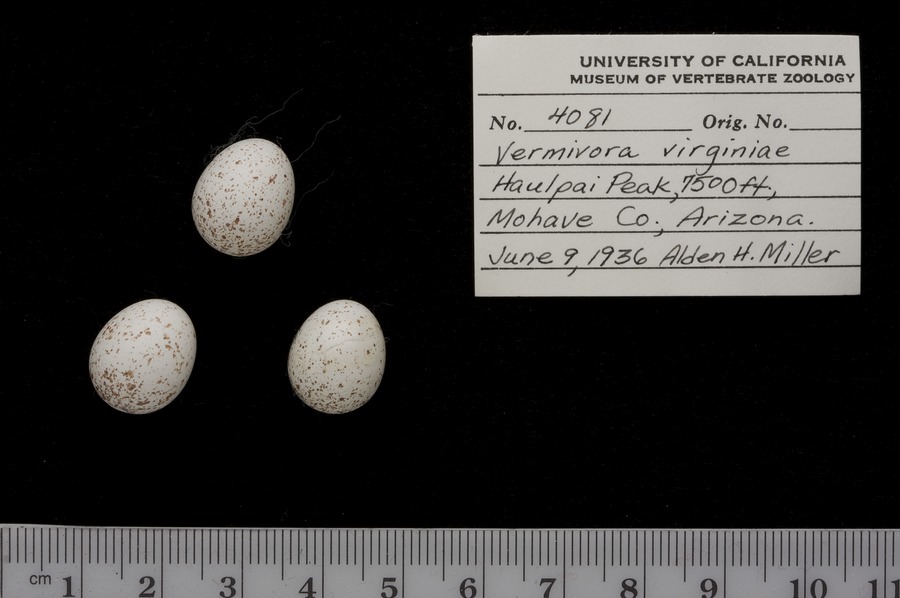 UNIVERSITY OF CALIFORNIA
MUSEUM OF VERTEBRATE ZOOLOGY
No. 4081 Orig. No.
Vermivora virginiae
Haulpai Peak, 7500 ft.,
Mohave Co., Arizona.
June 9, 1936 Alden H. Miller
cm 1 2 3 4 5 6 7 8 9 10 11